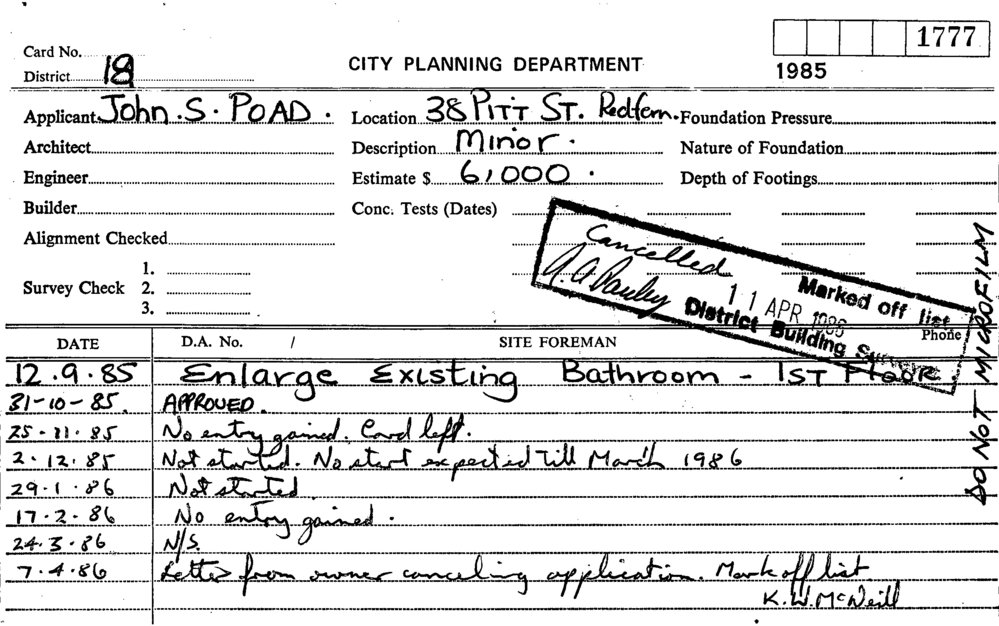 1777
Card No.
1985
District 18
CITY PLANNING DEPARTMENT
Applicant John . S . POAD . Location 38 PITT ST. Redfern. Foundation Pressure
Architect Description Minor . Nature of Foundation
Engineer Estimate $ 6,000 . Depth of Footings
Builder Conc. Tests (Dates)
Alignment Checked
Survey Check 1.
2.
3.
Cancelled
Marked off list
11 APR 1986
District Building
DO NOT MICROFILM
DATE D.A. No. / SITE FOREMAN Phone
12.9.85 Enlarge Existing Bathroom - 1ST FLOOR.
31-10-85. APPROVED.
25.11.85 No entry gained. Card left.
2.12.85 Not started. No start expected Till March 1986
29.1.86 Not started
17.2.86 No entry gained.
24.3.86 N/S.
7.4.86 Letter from owner canceling application. Mark off list
K.W. McNeill